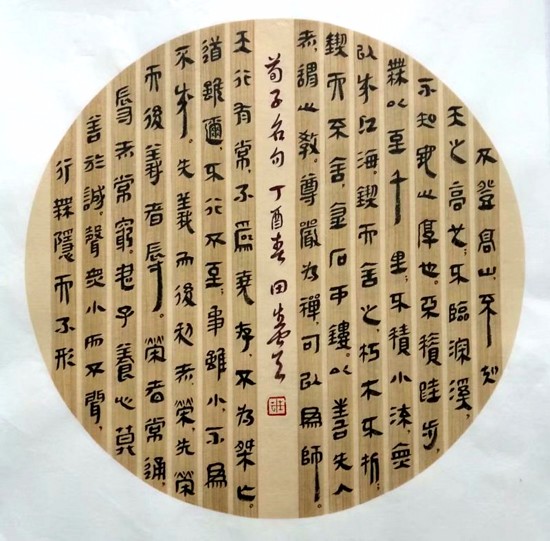 不登高山，不知
天之高也；不臨深溪，
不知地之厚也。不積跬步，
無以至千里；不積小流，無
以成江海。鍥而舍之，朽木不折；
鍥而不舍，金石可鏤。以善先人
者，謂之教。尊嚴为禪，可以為師。
荀子名句 丁酉春 田
天行有常，不為堯存，不为桀亡。
道雖邇，不行不至；事雖小，不為
不成。先義而後利者榮，先榮
而後義者辱。榮者常通，
辱者常窮。君子養心莫
善於誠。聲無小而不聞，
行無隱而不形